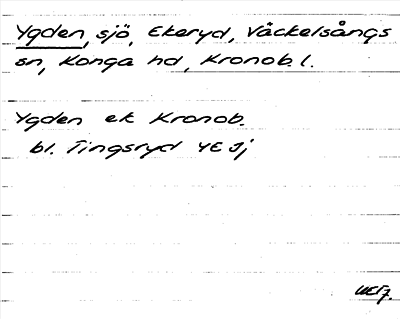 Ygden, sjö, Ekeryd, Väckelsångs
sn, Konga hd, Kronob. l.
Ygden ek Kronob.
bl. Tingsryd 4E 3j